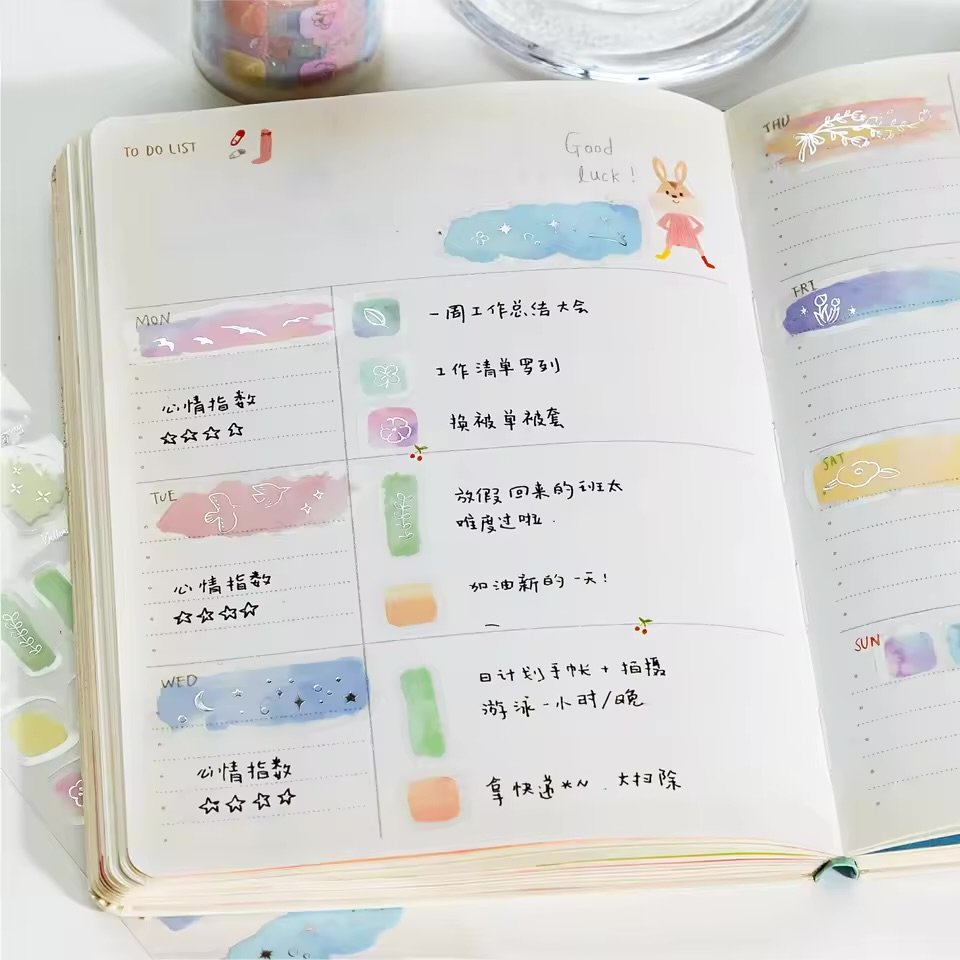 TO DO LIST
Good
luck!
MON
一周工作总结大会
工作清单罗列
换被单被套
心情指数
☆☆☆☆
TUE
放假回来的班太
难度过啦.
加油新的一天!
心情指数
☆☆☆☆
WED
日计划手帐+拍摄
游泳一小时/晚
拿快递*N.大扫除
心情指数
☆☆☆☆
THU
FRI
SAT
SUN